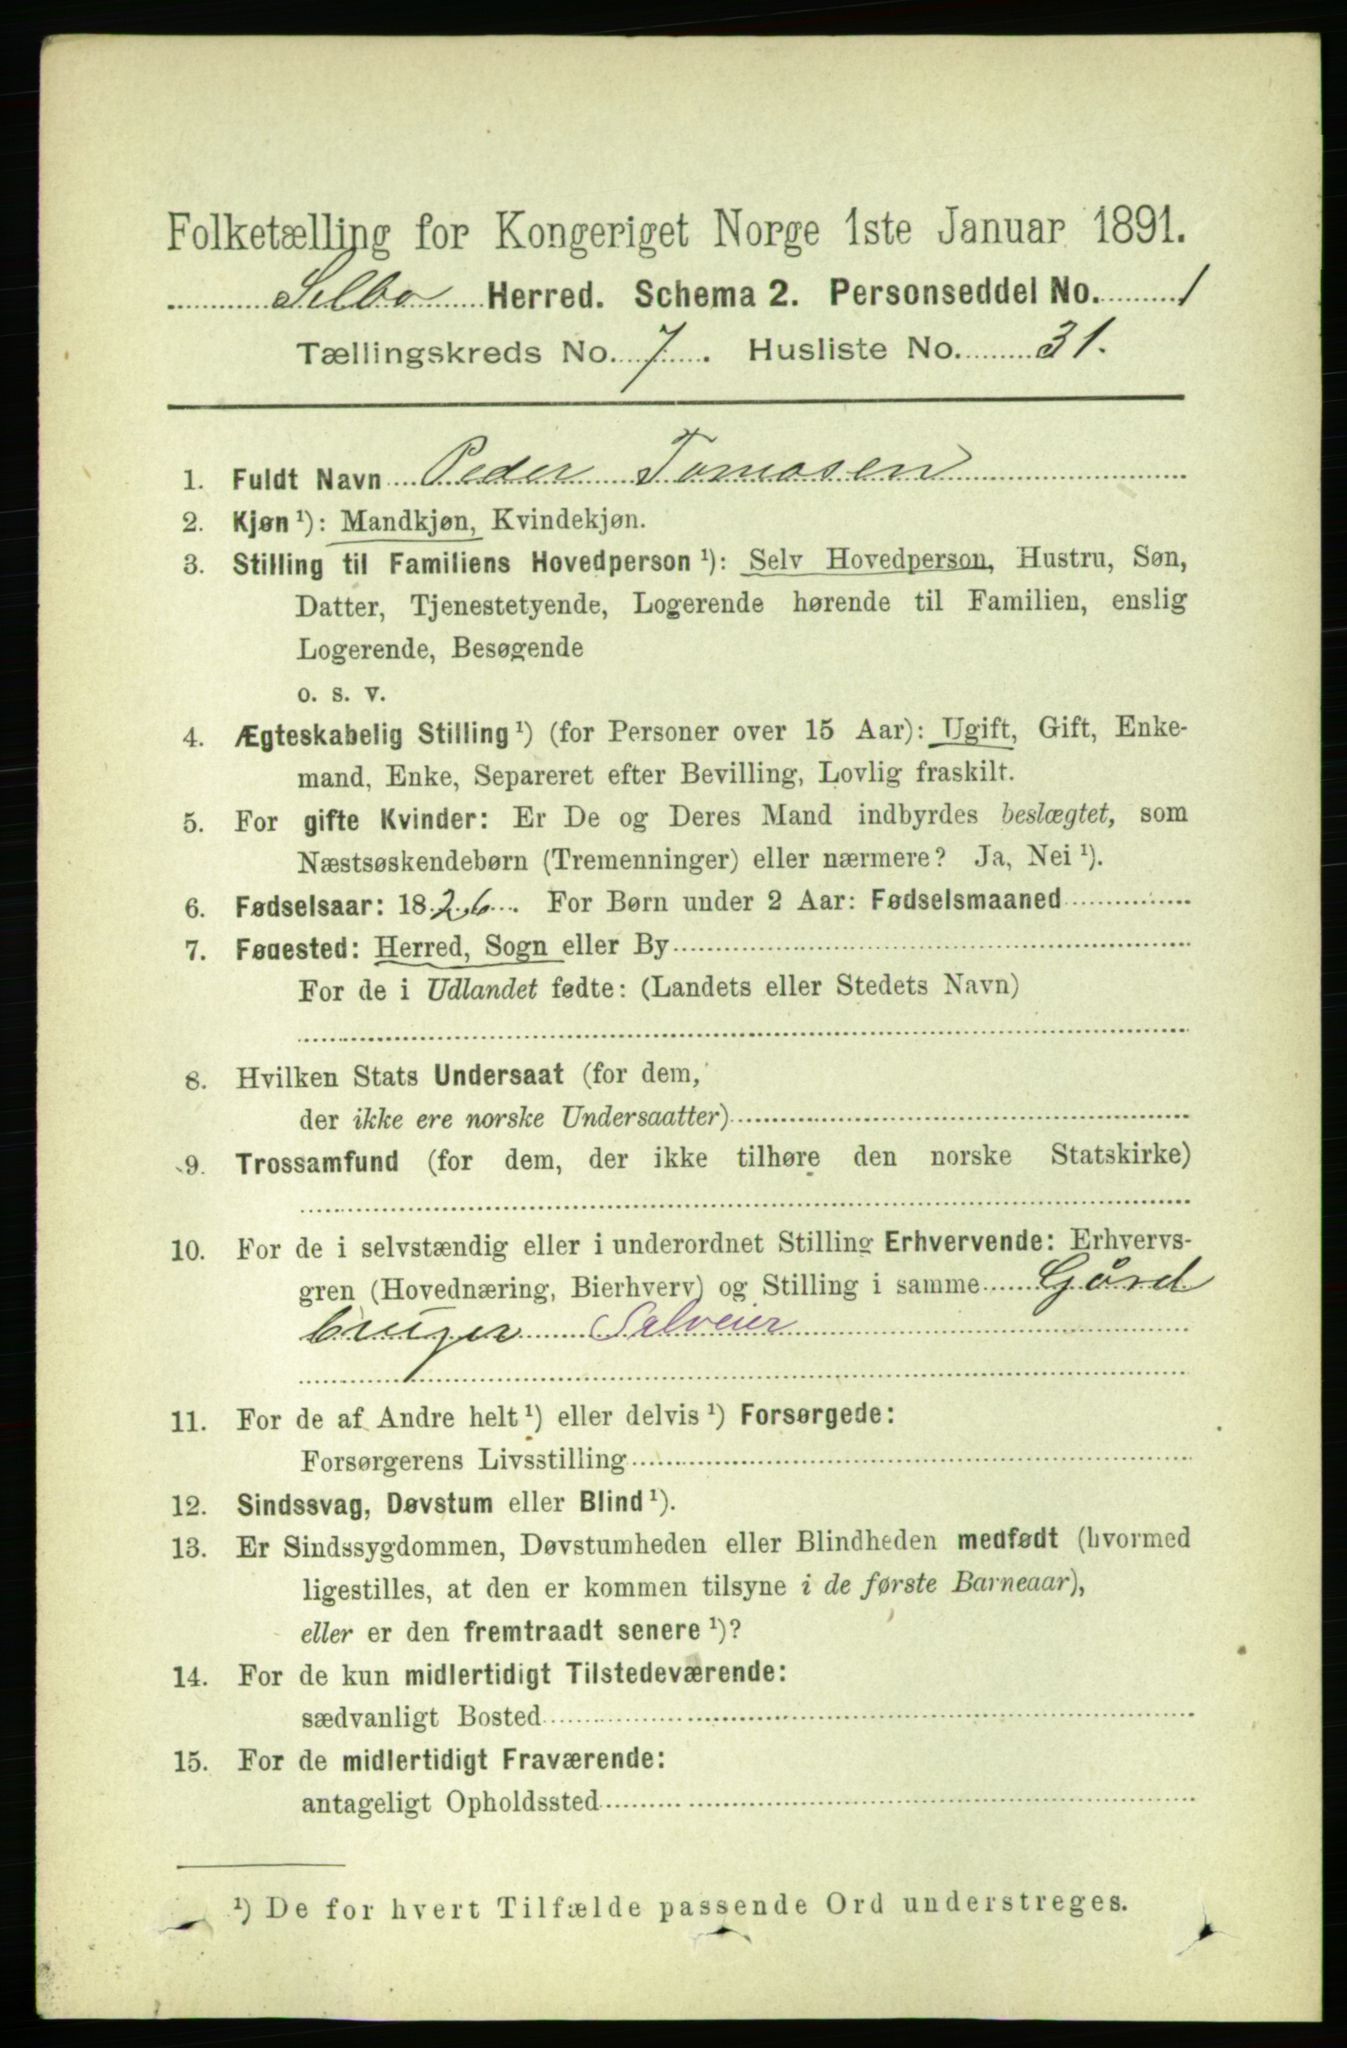 Folketælling for Kongeriget Norge 1ste Januar 1891.
Selbo Herred. Schema 2. Personseddel No. 1
Tællingskreds No. 7. Husliste No. 31.
1. Fuldt Navn Peder Tomasen
2. Kjøn ¹): Mandkjøn, Kvindekjøn.
3. Stilling til Familiens Hovedperson ¹): Selv Hovedperson, Hustru, Søn,
Datter, Tjenestetyende, Logerende hørende til Familien, enslig
Logerende, Besøgende
o. s. v.
4. Ægteskabelig Stilling ¹) (for Personer over 15 Aar): Ugift, Gift, Enke-
mand, Enke, Separeret efter Bevilling, Lovlig fraskilt.
5. For gifte Kvinder: Er De og Deres Mand indbyrdes beslægtet, som
Næstsøskendebørn (Tremenninger) eller nærmere? Ja, Nei ¹).
6. Fødselsaar: 1826. For Børn under 2 Aar: Fødselsmaaned
7. Fødested: Herred, Sogn eller By
For de i Udlandet fødte: (Landets eller Stedets Navn)
8. Hvilken Stats Undersaat (for dem,
der ikke ere norske Undersaatter)
9. Trossamfund (for dem, der ikke tilhøre den norske Statskirke)
10. For de i selvstændig eller i underordnet Stilling Erhvervende: Erhvervs-
gren (Hovednæring, Bierhverv) og Stilling i samme Gård
bruger Selveier
11. For de af Andre helt ¹) eller delvis ¹) Forsørgede:
Forsørgerens Livsstilling
12. Sindssvag, Døvstum eller Blind ¹).
13. Er Sindssygdommen, Døvstumheden eller Blindheden medfødt (hvormed
ligestilles, at den er kommen tilsyne i de første Barneaar),
eller er den fremtraadt senere ¹)?
14. For de kun midlertidigt Tilstedeværende:
sædvanligt Bosted
15. For de midlertidigt Fraværende:
antageligt Opholdssted
¹) De for hvert Tilfælde passende Ord understreges.